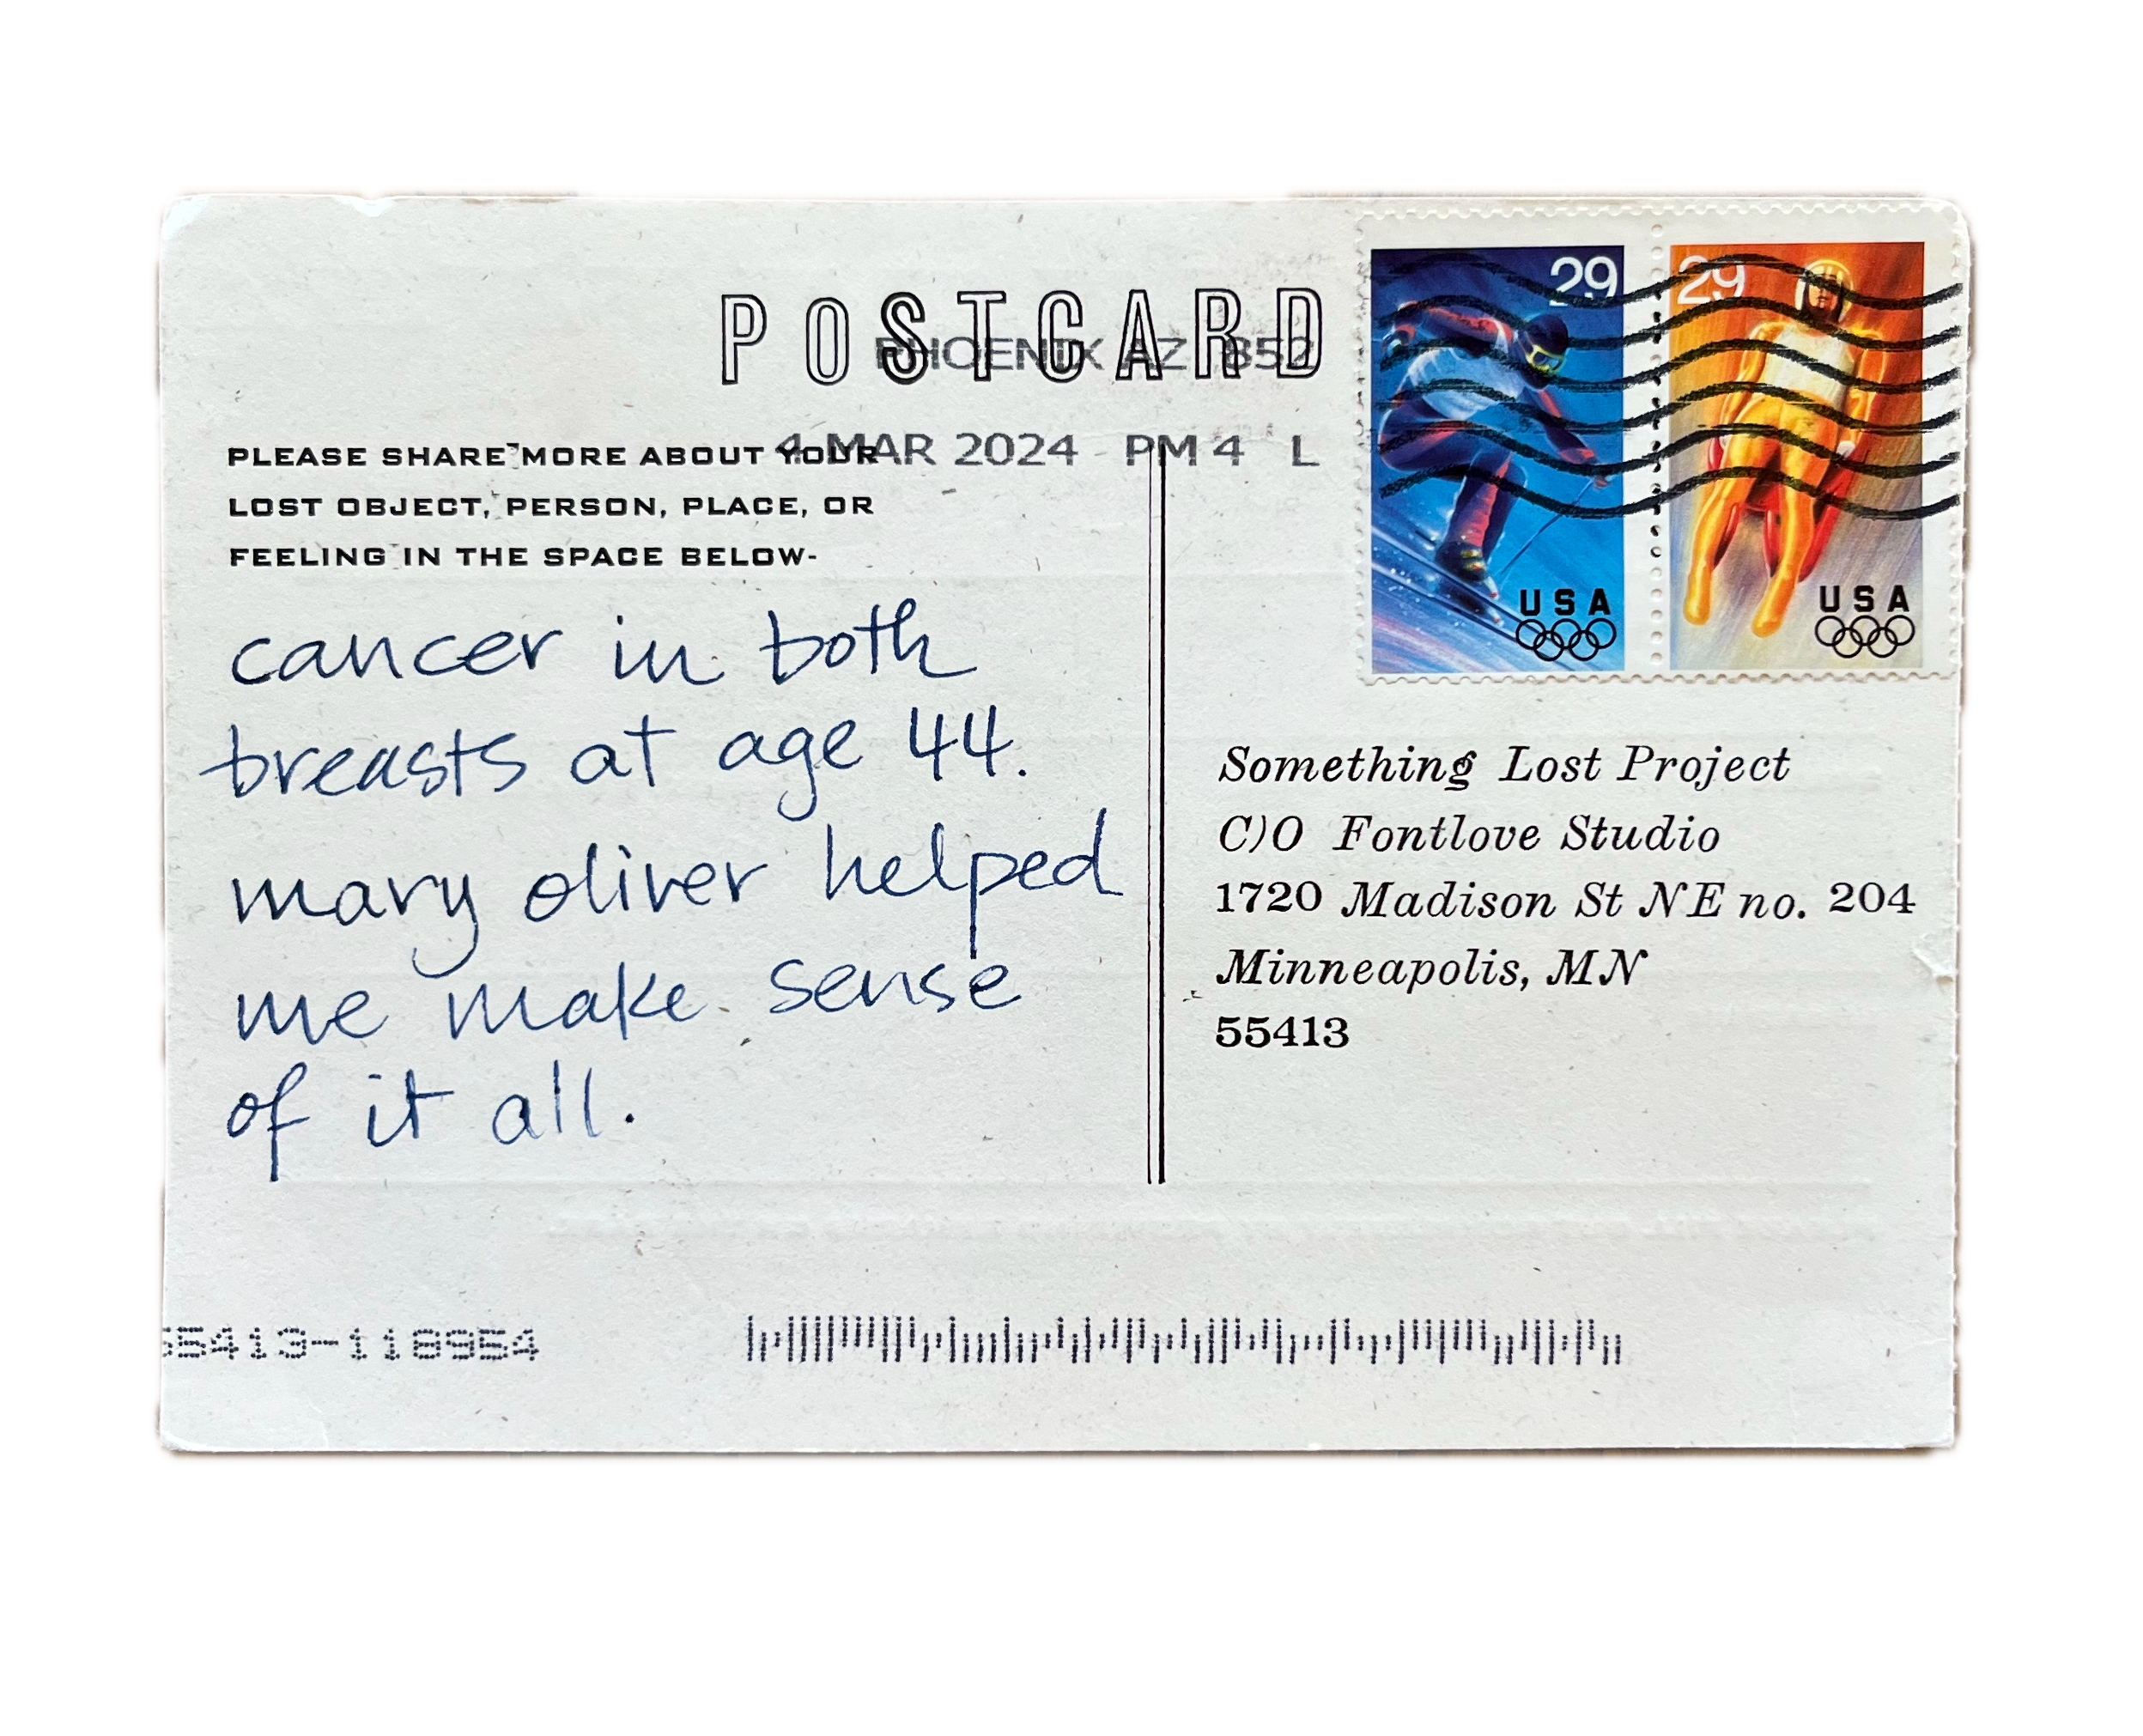 POSTCARD
PHOENIX AZ 852
4 MAR 2024 PM 4 L
29
29
USA
USA
PLEASE SHARE MORE ABOUT YOUR
LOST OBJECT, PERSON, PLACE, OR
FEELING IN THE SPACE BELOW-
cancer in both
breasts at age 44.
mary oliver helped
me make sense
of it all.
Something Lost Project
C)O Fontlove Studio
1720 Madison St NE no. 204
Minneapolis, MN
55413
55413-118954